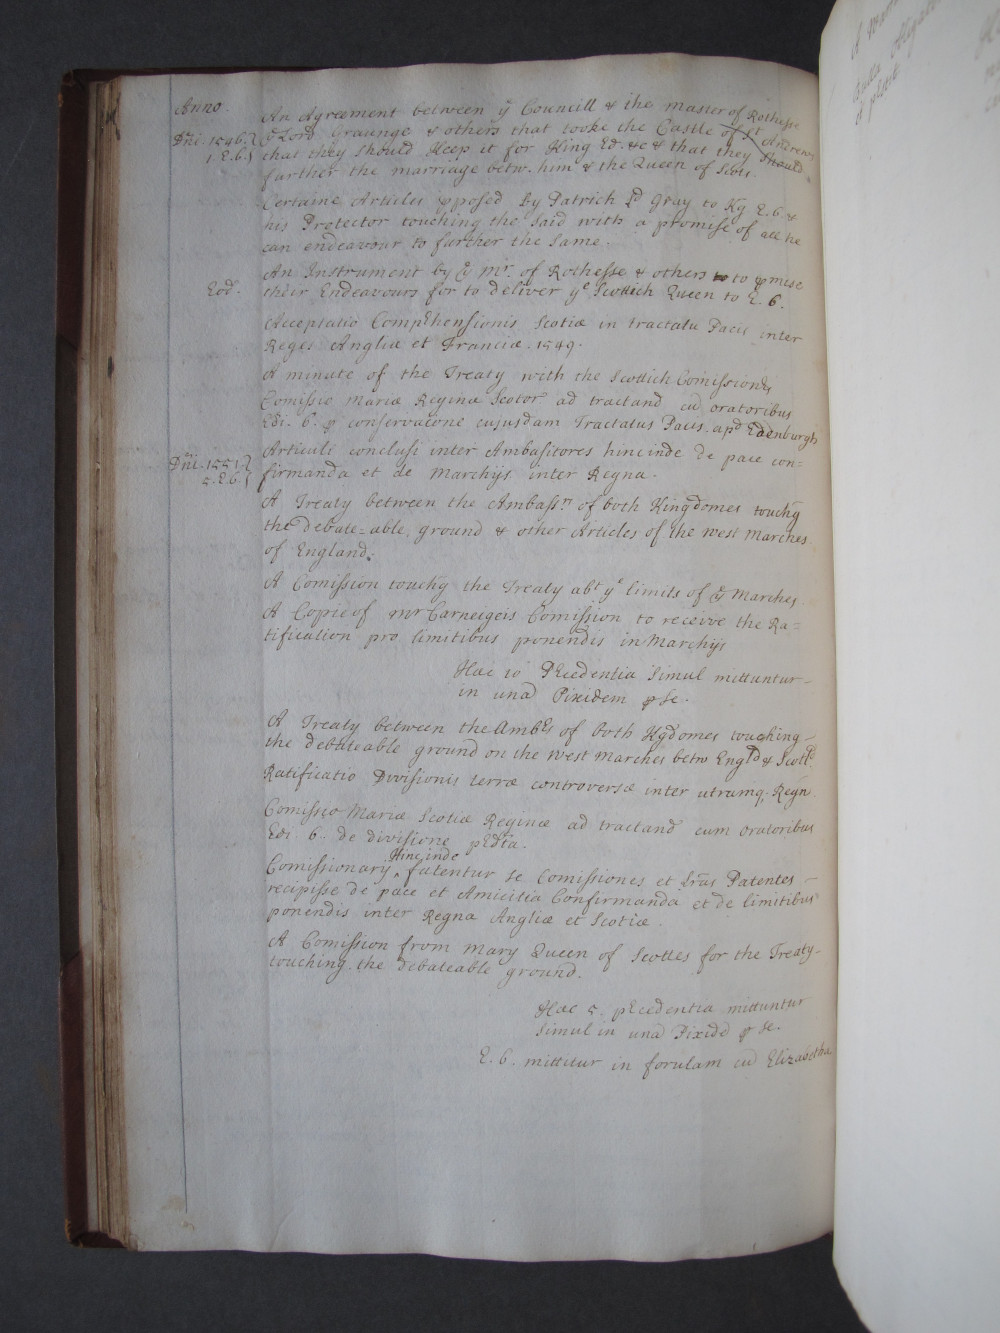 Anno.
An Agreement between yͤ Councill & the master of Rothesse
Dñi. 1546. yͤ Lord Graunge & others that tooke the Castle of St Andrews
1. E. 6. that they should Keep it for King Ed. &c & that they should
further the marriage betw. him & the Queen of Scots.
Certaine Articles pposed by Patrick Ld Gray to Kg E. 6 &
his Protector touching the said with a promise of all he
can endeavour to further the same.
An Instrument by yͤ Mr. of Rothesse & others to to pmise
Eod. their Endeavours for to deliver yͤ Scottich Queen to E. 6.
Acceptatio Comprhensionis Scotiæ in tractatu Pacis inter
Reges Angliæ et Franciæ. 1549.
A minute of the Treaty with the Scottich Comissionrs
Comissio Mariæ Reginæ Scotor ad tractand cũ oratoribus
Edi. 6. p conservacone cujusdam Tractatus Pacis apd Edenburgh
Articuli conclusi inter Ambasitores hincinde de pace con=
Dñi. 1551. firmanda et de Marchijs inter Regna.
5. E. 6.
A Treaty between the Ambassrs of both Kingdomes touchg
the debate=able ground & other Articles of the west Marches
of England.
A Comission touchg the Treaty abt yͤ limits of yͤ Marches
A Copie of Mr Carnegeis Comission to receive the Ra=
tification pro limitibus ponendis in Marchijs
Hæc 10 Precedentia simul mittuntur
in unã Pixidem p se.
A Treaty between the Ambrs of both Kgdomes touching
the debateable ground on the west Marches betw Engld & Scotld
Ratificatio Divisionis terræ controversæ inter utrumq; Regn
Comissio Mariæ Scotiæ Reginæ ad tractand cum oratoribus
Edi. 6. de divisione pedta.
Hincinde
Comissionary ^ fatentur se Comissiones et Lrãs Patentes
recipisse de pace et Amicitia Confirmanda et de limitibus
ponendis inter Regna Angliæ et Scotiæ.
A Comission from Mary Queen of Scottes for the Treaty
touching the debateable ground.
Hæc 5. precedentia mittuntur
simul in unã Pixidẽ p se.
E. 6. mittitur in forulam cũ Elizabetha